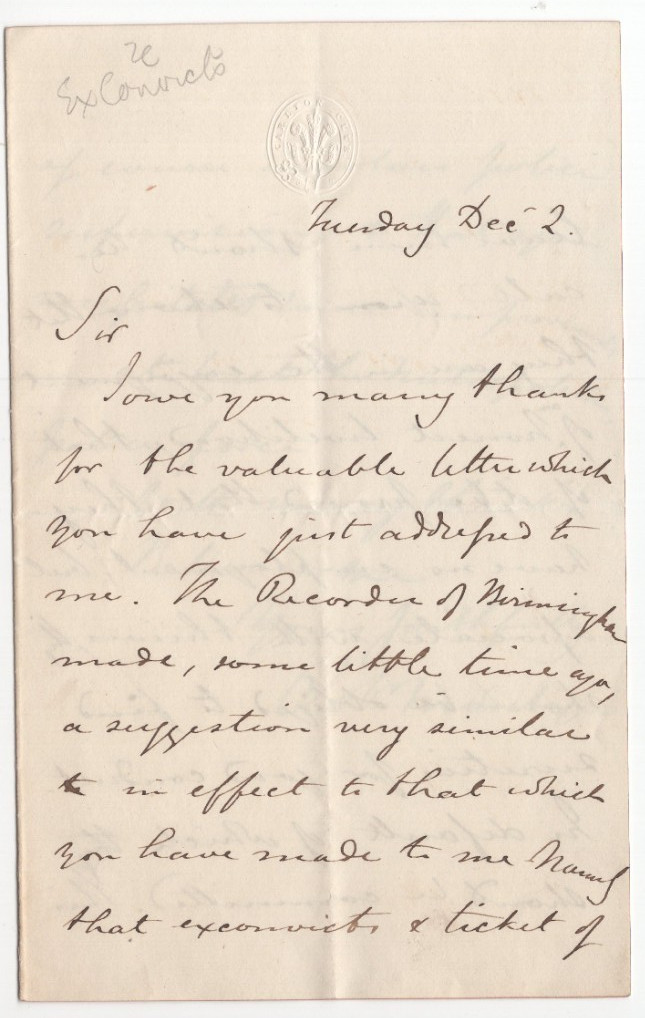 re
Ex Convicts
CARLTON CLUB
Tuesday Dec 2.
Sir
I owe you many thanks
for the valuable letter which
you have just addressed to
me. The Recorder of Birmingham
made, some little time ago,
a suggestion very similar
in effect to that which
you have made to me namely
that exconvicts & ticket of